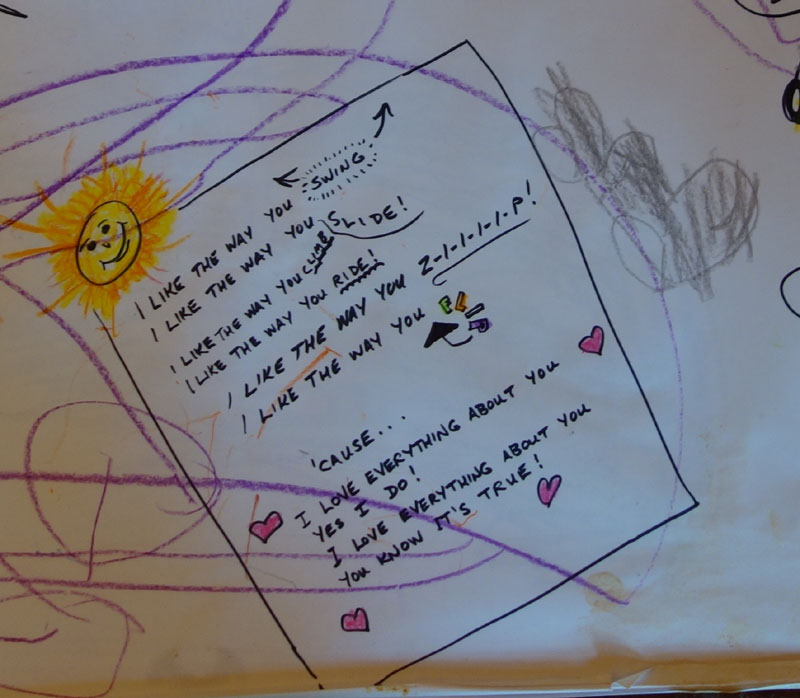 I LIKE THE WAY YOU SWING
I LIKE THE WAY YOU SLIDE!
I LIKE THE WAY YOU CLIMB
I LIKE THE WAY YOU RIDE!
I LIKE THE WAY YOU Z-I-I-I-I-P!
I LIKE THE WAY YOU FLIP
'CAUSE...
I LOVE EVERYTHING ABOUT YOU
YES I DO!
I LOVE EVERYTHING ABOUT YOU
YOU KNOW IT'S TRUE!